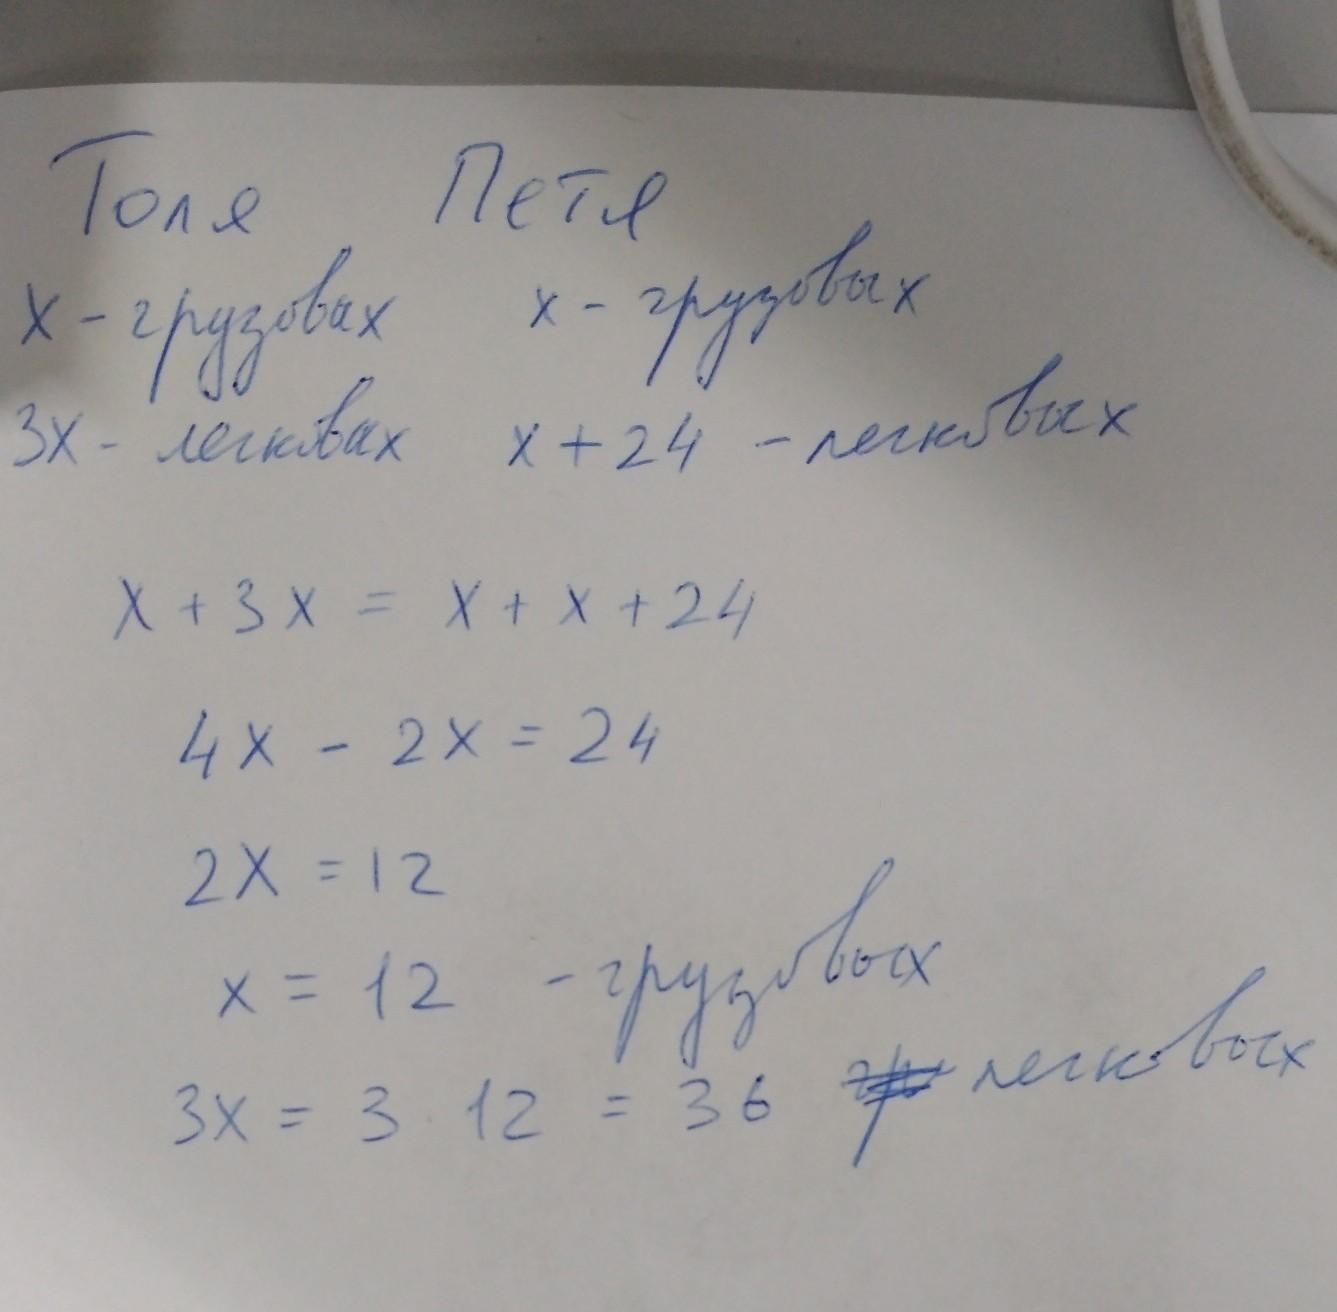 Толя Петя
х - грузовых х - грузовых
3х - легковых х + 24 - легковых
х + 3х = х + х + 24
4х - 2х = 24
2х = 12
х = 12 - грузовых
3х = 3 · 12 = 36 легковых